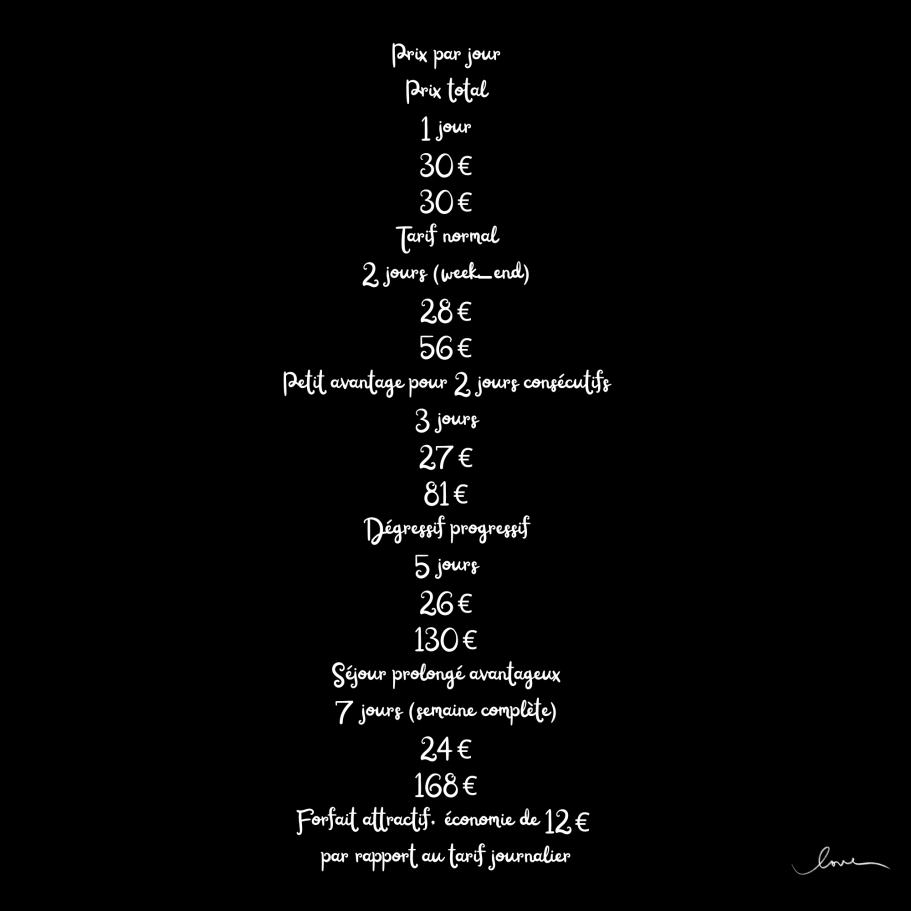 Prix par jour
Prix total
1 jour
30 €
30 €
Tarif normal
2 jours (week_end)
28 €
56 €
Petit avantage pour 2 jours consécutifs
3 jours
27 €
81 €
Dégressif progressif
5 jours
26 €
130 €
Séjour prolongé avantageux
7 jours (semaine complète)
24 €
168 €
Forfait attractif. économie de 12 €
par rapport au tarif journalier
love